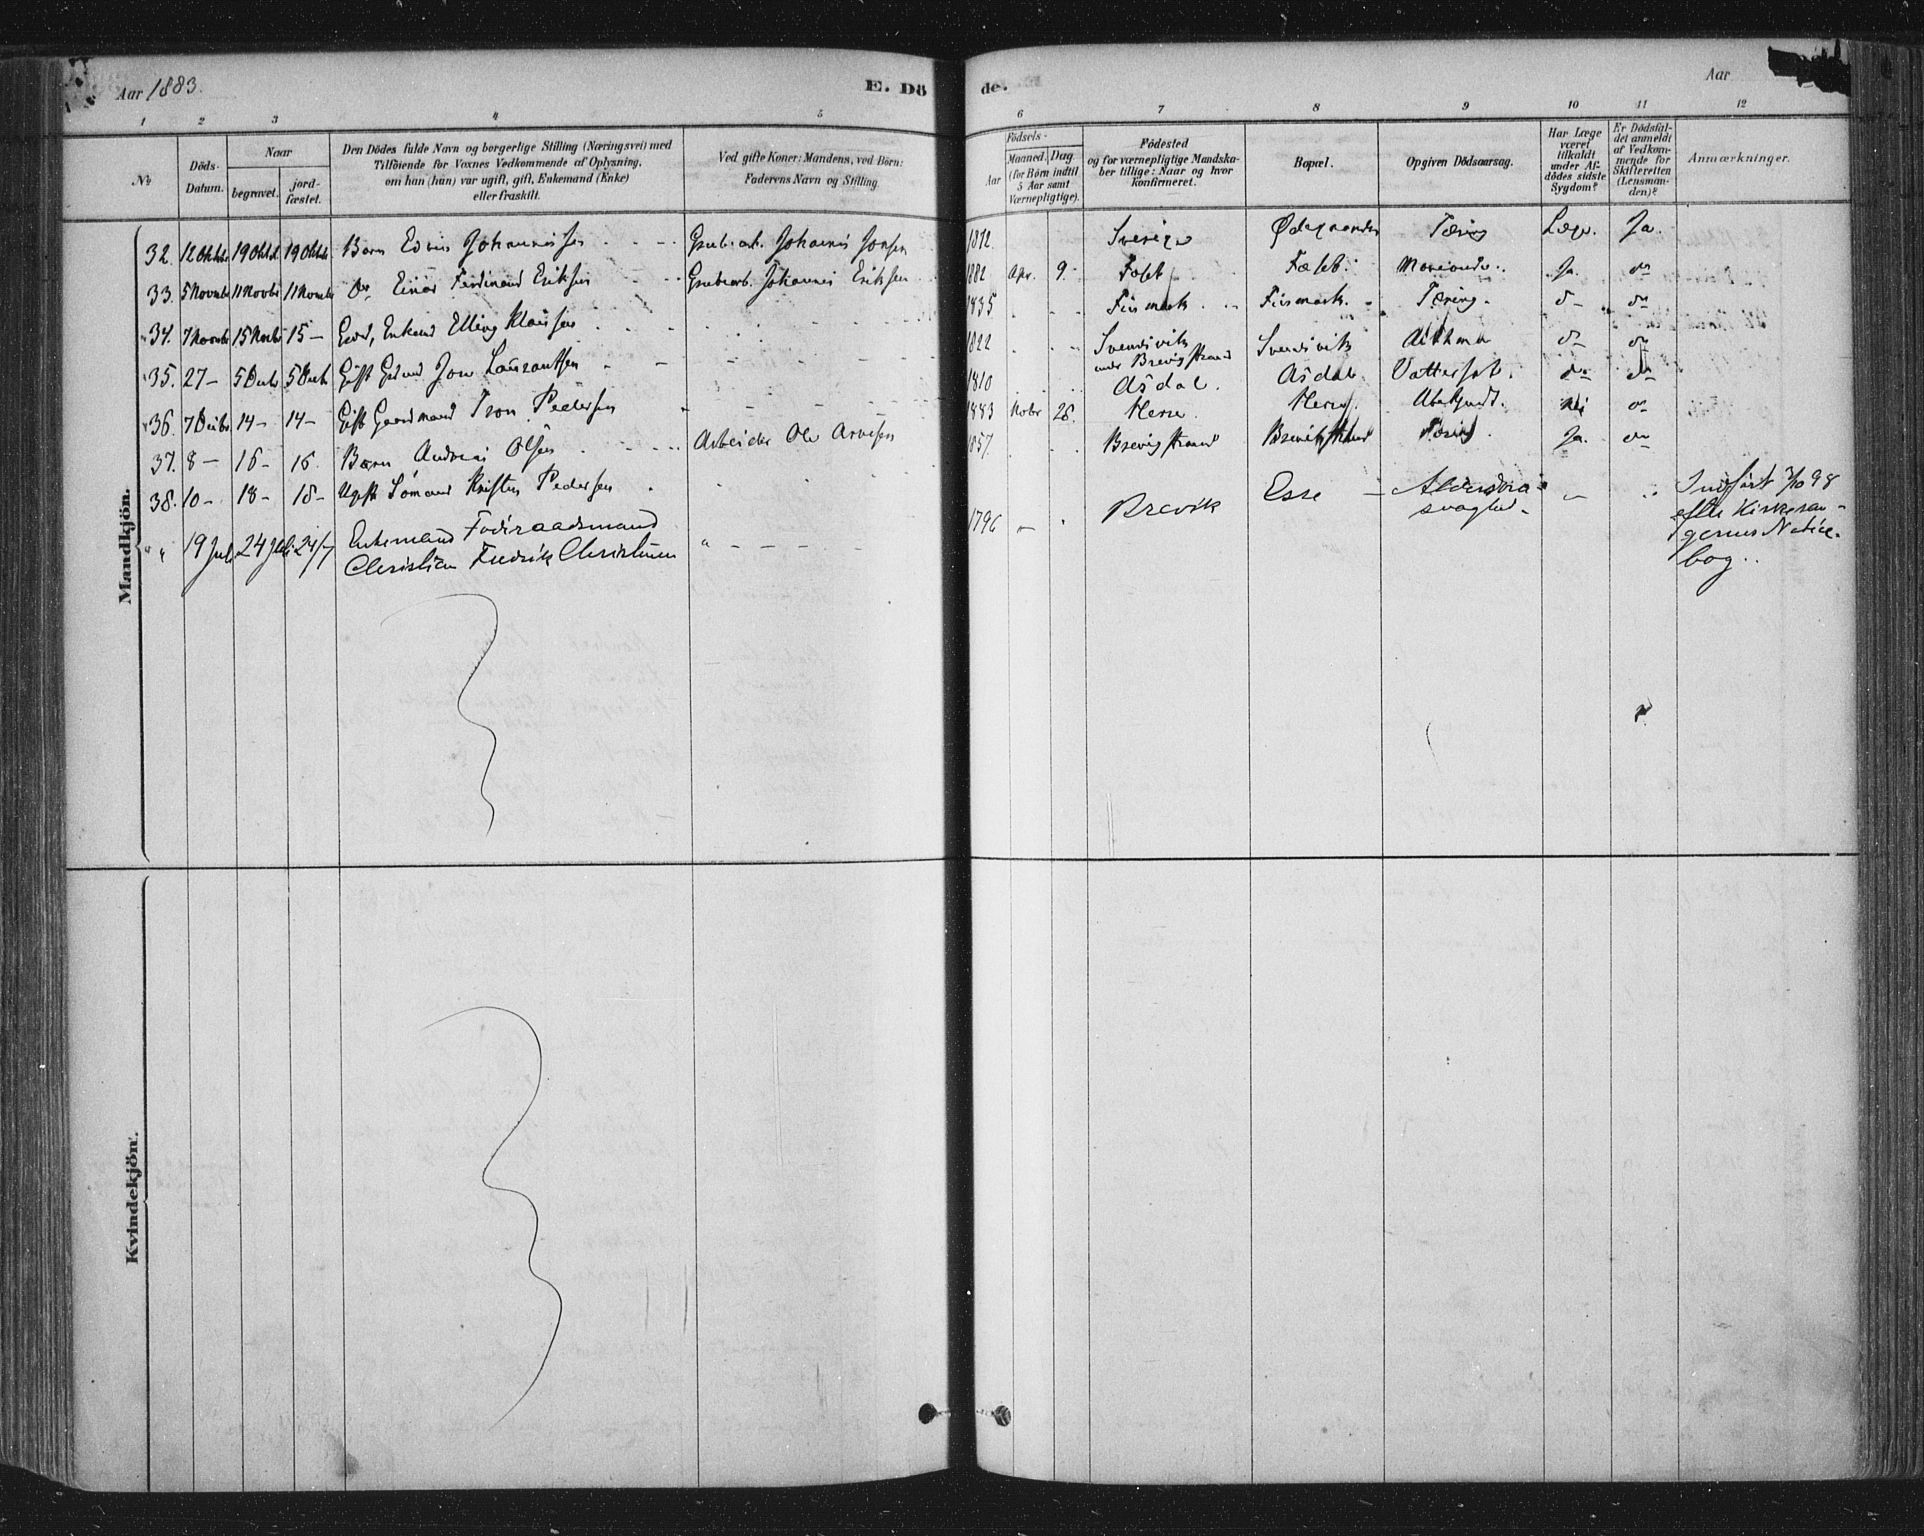 Aar 1883.
E. Dö
de.
Aar
1 2 3 4 5 6 7 8 9 10 11 12
No
Döds-Datum.
Naar
begravet.
jord-fæstet.
Den Dödes fulde Navn og borgerlige Stilling (Næringsvei) med
Tilföiende for Voxnes Vedkommende af Oplysning,
om han (hun) var ugift, gift, Enkemand (Enke)
eller fraskilt.
Ved gifte Koner: Mandens, ved Börn:
Faderens Navn og Stilling.
Födsels-
Aar
Maaned. Dag
(for Börn indtil
5 Aar samt
Værnepligtige).
Födested
og for værnepligtige Mandska-
ber tillige: Naar og hvor
konfirmeret.
Bopæl.
Opgiven Dödsaarsag.
Har Læge
været
tilkaldt
under Af-
dödes sidste
Sygdom?
Er Dödsfal-
det anmeldt
af Vedkom-
mende for
Skifteretten
(Lensman-
den)?
Anmærkninger.
Mandkjön.
32. 12 Oktbr 19 Oktb 19 Oktbr Barn Edvin Johannisen Grubearb. Johannis Jonsen 1812. Sverige Tæring Læge. Ja.
33. 5 Novmbr 11 Novbr 11 Novmbr Do Einar Ferdinand Eriksen Grubearb. Johannis Eriksen 1882 Apr. 9. Ja. do
34. 7 Novmbr 15 Novbr 15 – Enkemd Elling Klausen 1835 Finmark. Finmark. Tæring. do do
35. 27 – 5 Decbr 5 Decb Gift Jon Laurantsen 1822 Svendsvik
under Brevigstrand Svendsvik Asthma do do
36. 7 Decbr 14 – 14 – Gift Gaardmand Tron Pedersen 1810 Asdal. Asdal. Vattersot. do do
37. 8 – 16 – 16. Barn Andreas Olsen Arbeider Ole Arnesen 1883 Novbr 26. Herre. Herre. Nei do
38. 10 – 18 – 18 – Ugift Sömand Kristen Pedersen 1857. Brevigstrand Brevikstrand Tæring. Ja. do
" " 19 Juli 24 Juli 24/7 Enkemand Föderaadsmand
Christian Fredrik Christensen " – – – 1796 – Brevik Esse – Alderdoms
svaghed – – Indført 7/10 98
efter Kirkesan-
gerens Notice-
bog.
Kvindekjön.